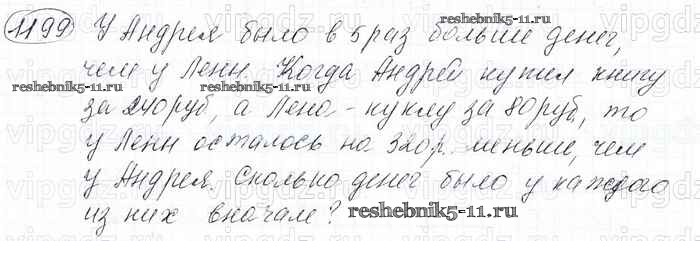 1199 У Андрея было в 5 раз больше денег,
чем у Лены. Когда Андрей купил книгу
за 240 руб, а Лена - куклу за 80 руб, то
у Лены осталось на 320 р. меньше, чем
у Андрея. Сколько денег было у каждого
из них вначале?
reshebnik5-11.ru
reshebnik5-11.ru
reshebnik5-11.ru
reshebnik5-11.ru